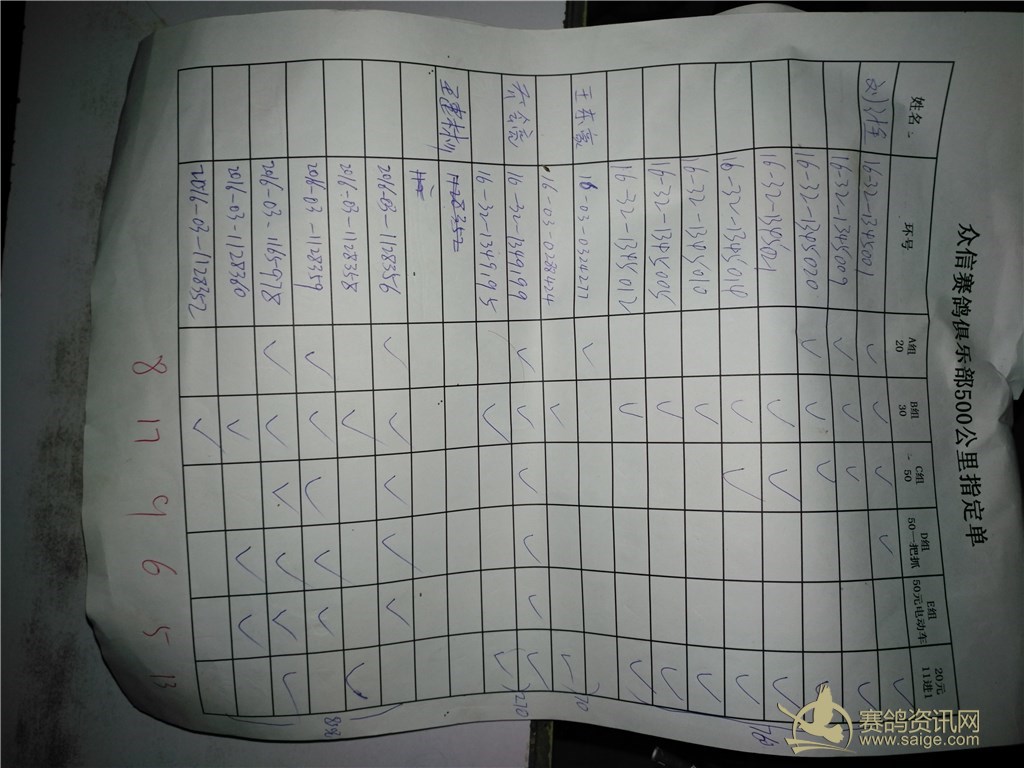 众信赛鸽俱乐部500公里指定单
姓名 环号 A组 20 B组 30 C组 50 D组 50一把抓 E组 50元电动车 20元 11进1
16-32-1345001 ✓ ✓ ✓ ✓ ✓
16-32-1345009 ✓ ✓ ✓ ✓
16-32-1345020 ✓ ✓ ✓ ✓
16-32-1345021 ✓ ✓ ✓
16-32-1345040 ✓ ✓ ✓
16-32-1345010 ✓ ✓
16-32-1345005 ✓ ✓
16-32-1345012 ✓ ✓
王东亮 16-03-0534277 ✓
16-03-0284424 ✓ ✓ 70
乔会亮 16-32-1349199 ✓ ✓ ✓ ✓ ✓ ✓ 270
16-32-1349195 ✓ ✓
2016-03-1128356 ✓ ✓ ✓ ✓ ✓
2016-03-1128358 ✓ ✓
2016-03-1128359 ✓ ✓ ✓ ✓ ✓
2016-03-1165978 ✓ ✓ ✓ ✓ ✓ ✓
2016-03-1128360 ✓ ✓ ✓
2016-03-1128352 ✓
8 17 9 6 5 13
赛鸽资讯网
www.saige.com